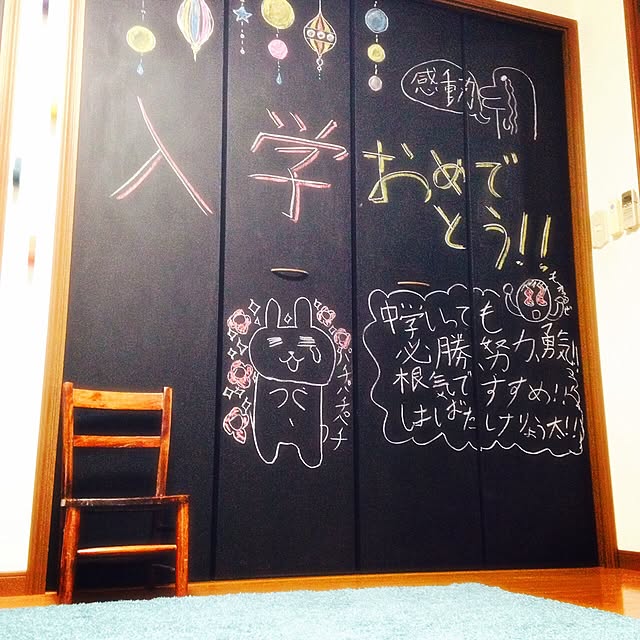 感動
入学おめで
とう!!
パチパチパチ
中学いっても
必勝、努力、勇気!
根気ですすめ!!
はばたけりょう太!!